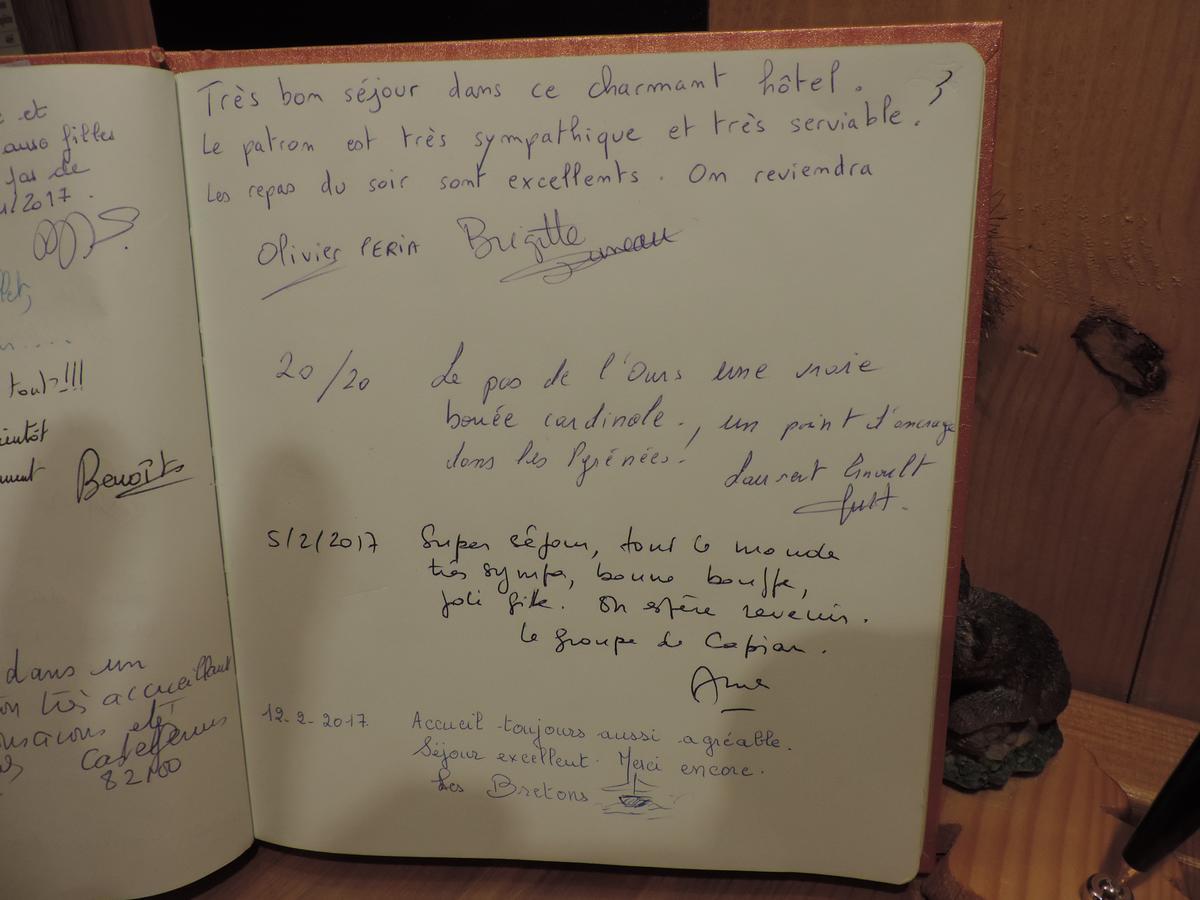 et
filles
de
/2017.
tout !!!
Benoît
dans un
très accueillant
Castelferrus
82100
Très bon séjour dans ce charmant hôtel.
Le patron est très sympathique et très serviable.
Les repas du soir sont excellents. On reviendra
Olivier PERIA Brigitte
20/20 Le pas de l'Ours une vraie
bouée cardinale., un point d'ancrage
dans les Pyrénées.
Laurent
5/2/2017 Super séjour, tout le monde
très sympa, bonne bouffe,
joli gîte. On espère revenir.
le groupe de Capian.
Anne
12-2-2017 Accueil toujours aussi agréable.
Séjour excellent. Merci encore.
Les Bretons